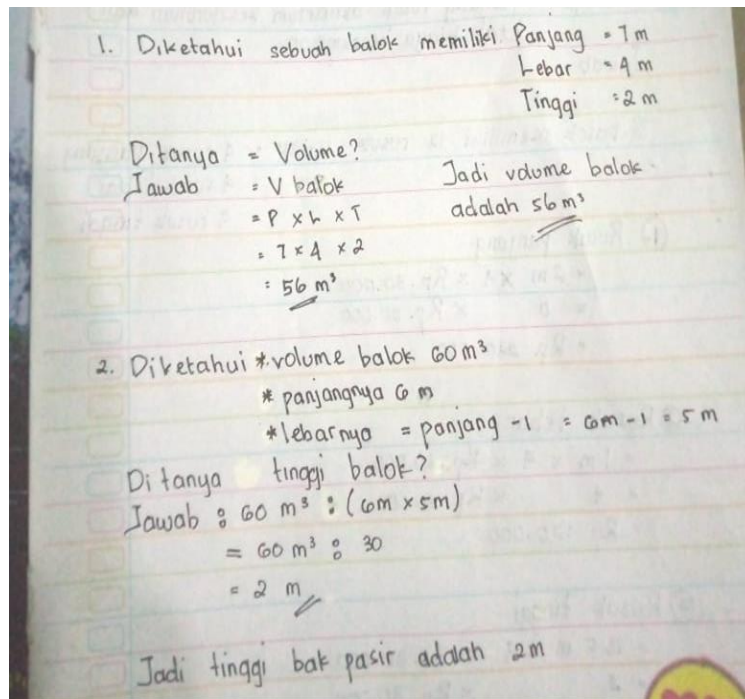 1. Diketahui sebuah balok memiliki Panjang = 7 m
Lebar = 4 m
Tinggi = 2 m
Ditanya = Volume?
Jawab = V balok
= P x L x T
= 7 x 4 x 2
= 56 m³
Jadi volume balok
adalah 56 m³
2. Diketahui * volume balok 60 m³
* panjangnya 6 m
* lebarnya = panjang - 1 = 6m - 1 = 5 m
Ditanya tinggi balok?
Jawab : 60 m³ : (6m x 5m)
= 60 m³ : 30
= 2 m
Jadi tinggi bak pasir adalah 2m